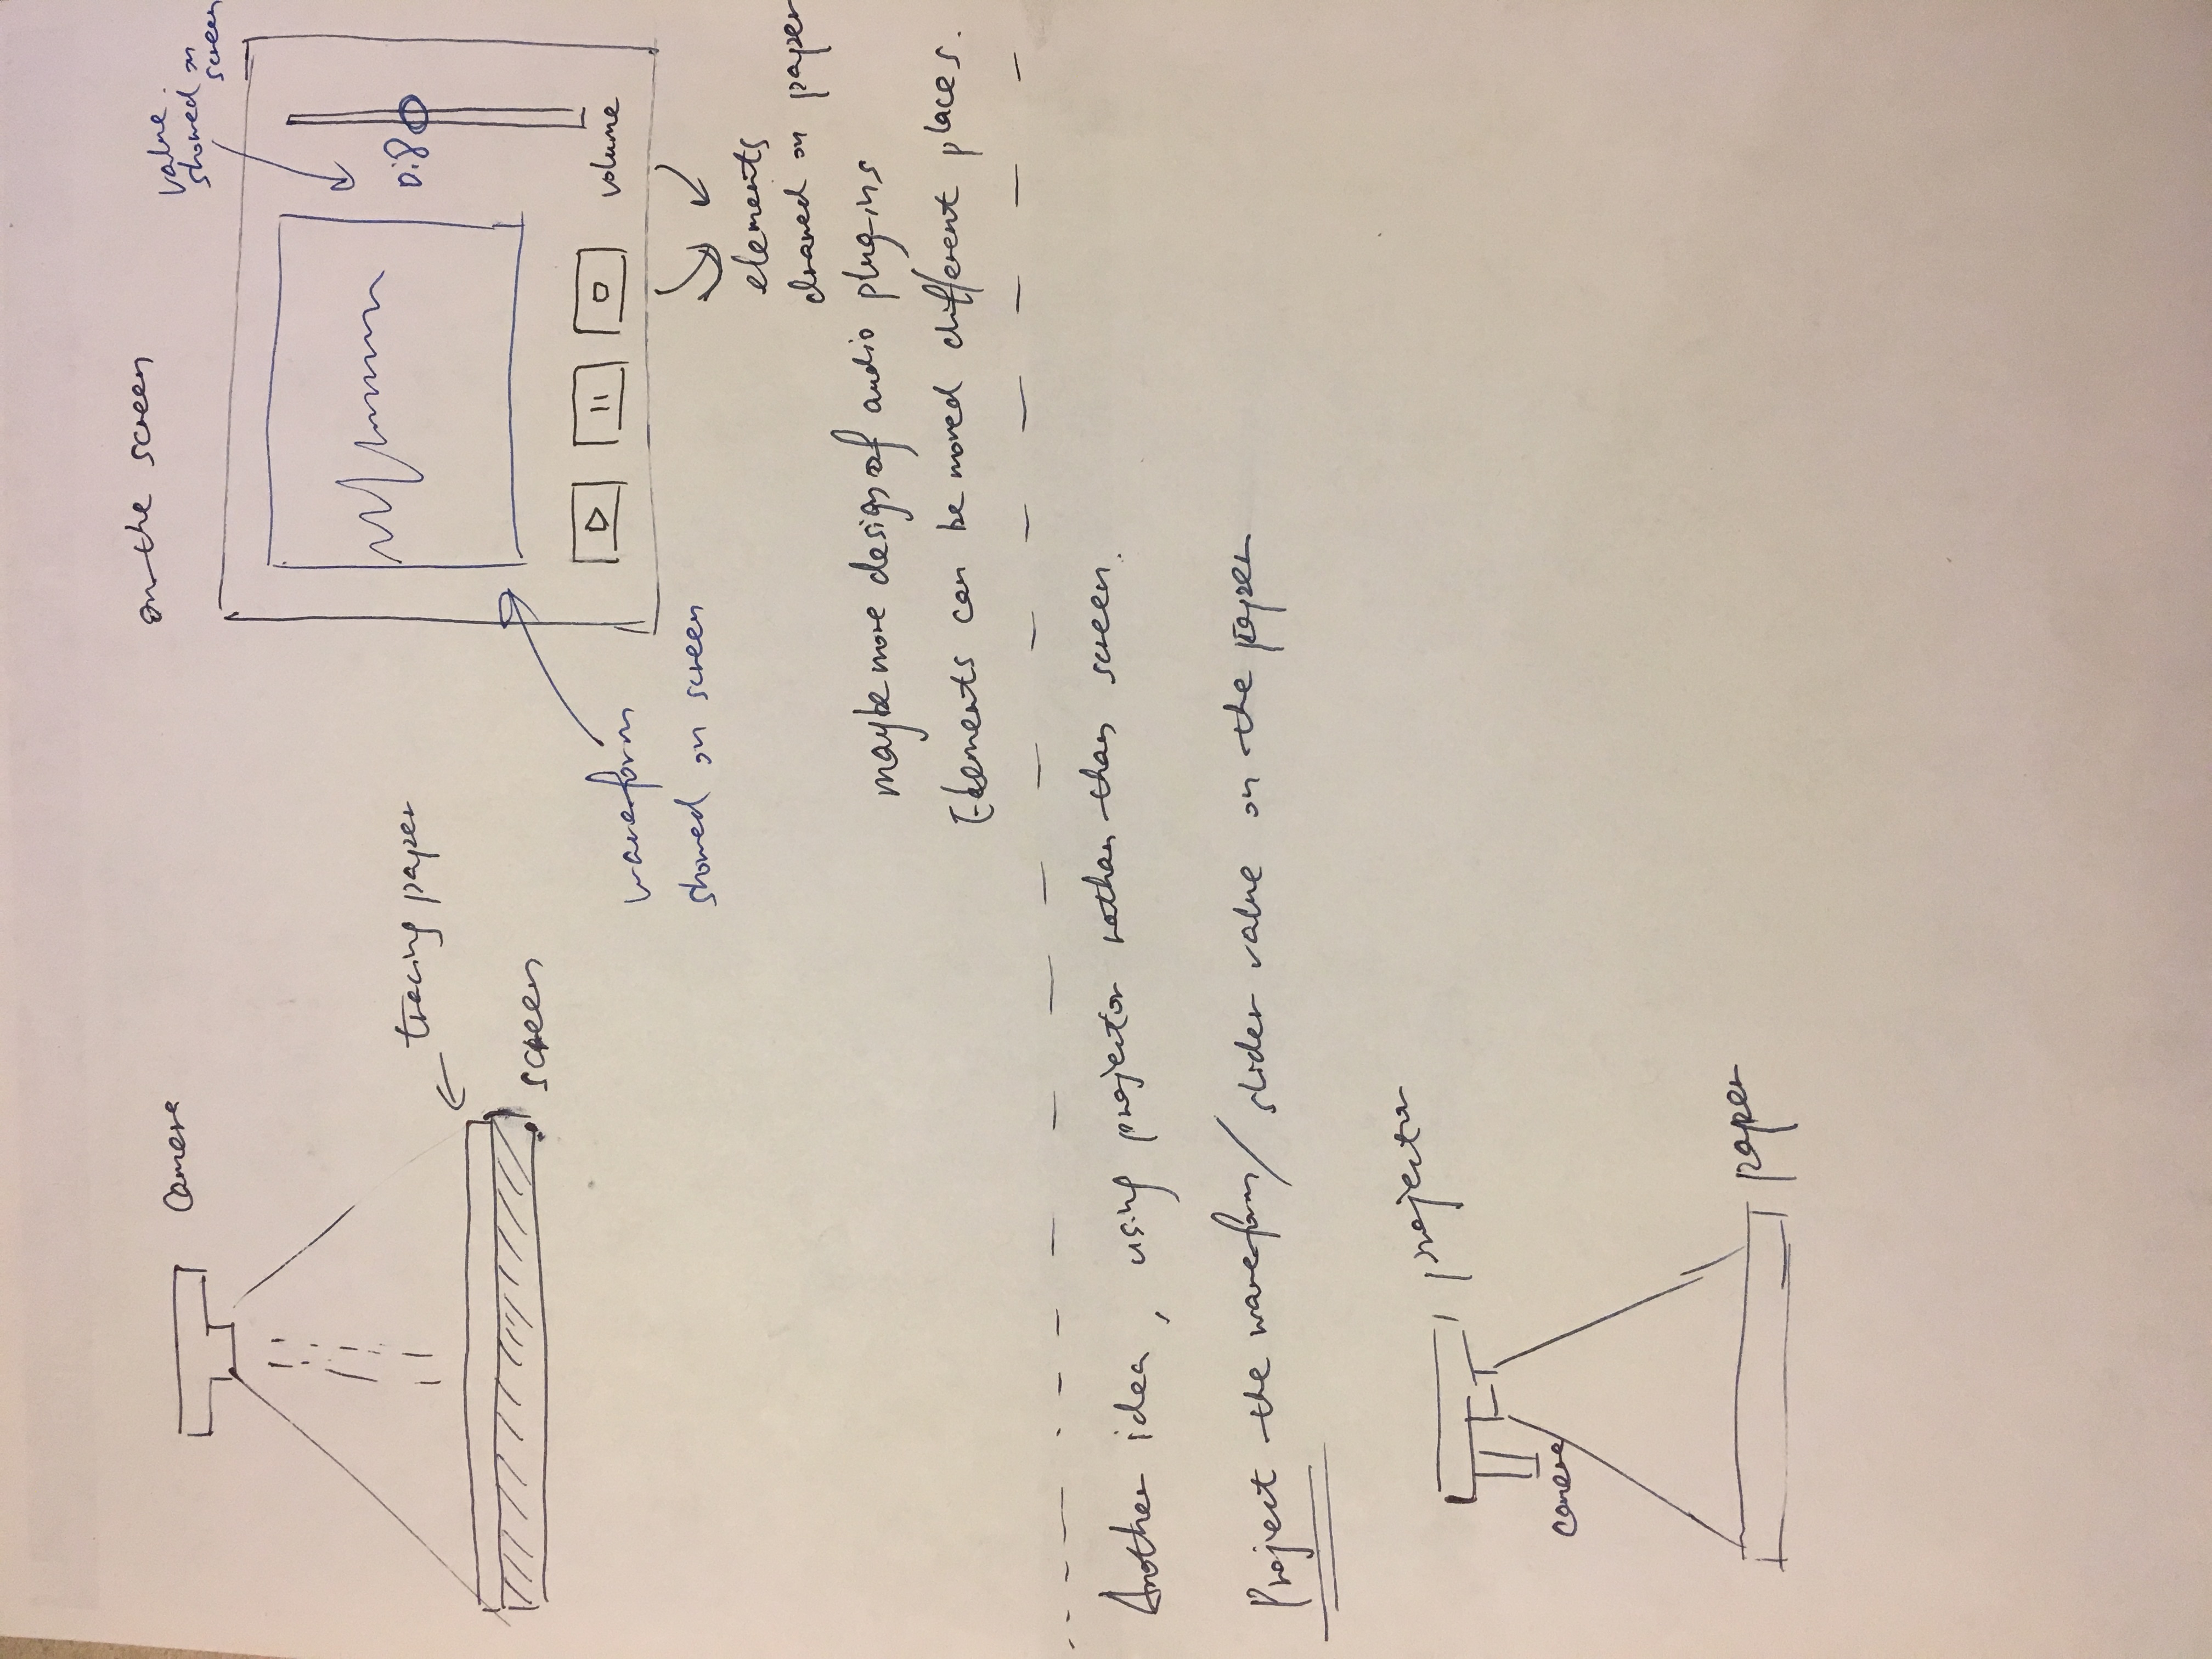 Camera
tracing paper
screen
on the screen
value.
showed on
screen
0.8
volume
waveform
showed on screen
elements
drawed on paper
maybe more design of audio plug-ins
Elements can be moved different places.
Another idea, using projector rathar than screen.
Project the waveform/slider value on the paper
projector
camera
paper